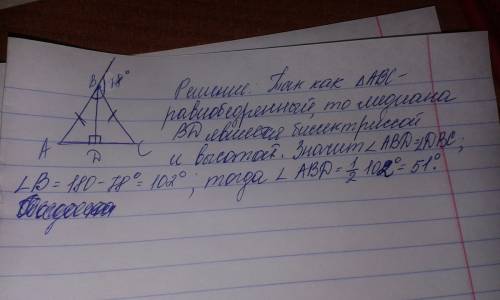 B 78°
Решение. Так как △ABC-
равнобедренный, то медиана
BD является биссектриссой
A D C
и высотой. Значит ∠ABD=∠DBC;
∠B = 180-78°=102°; тогда ∠ABD=1/2 102°=51°.